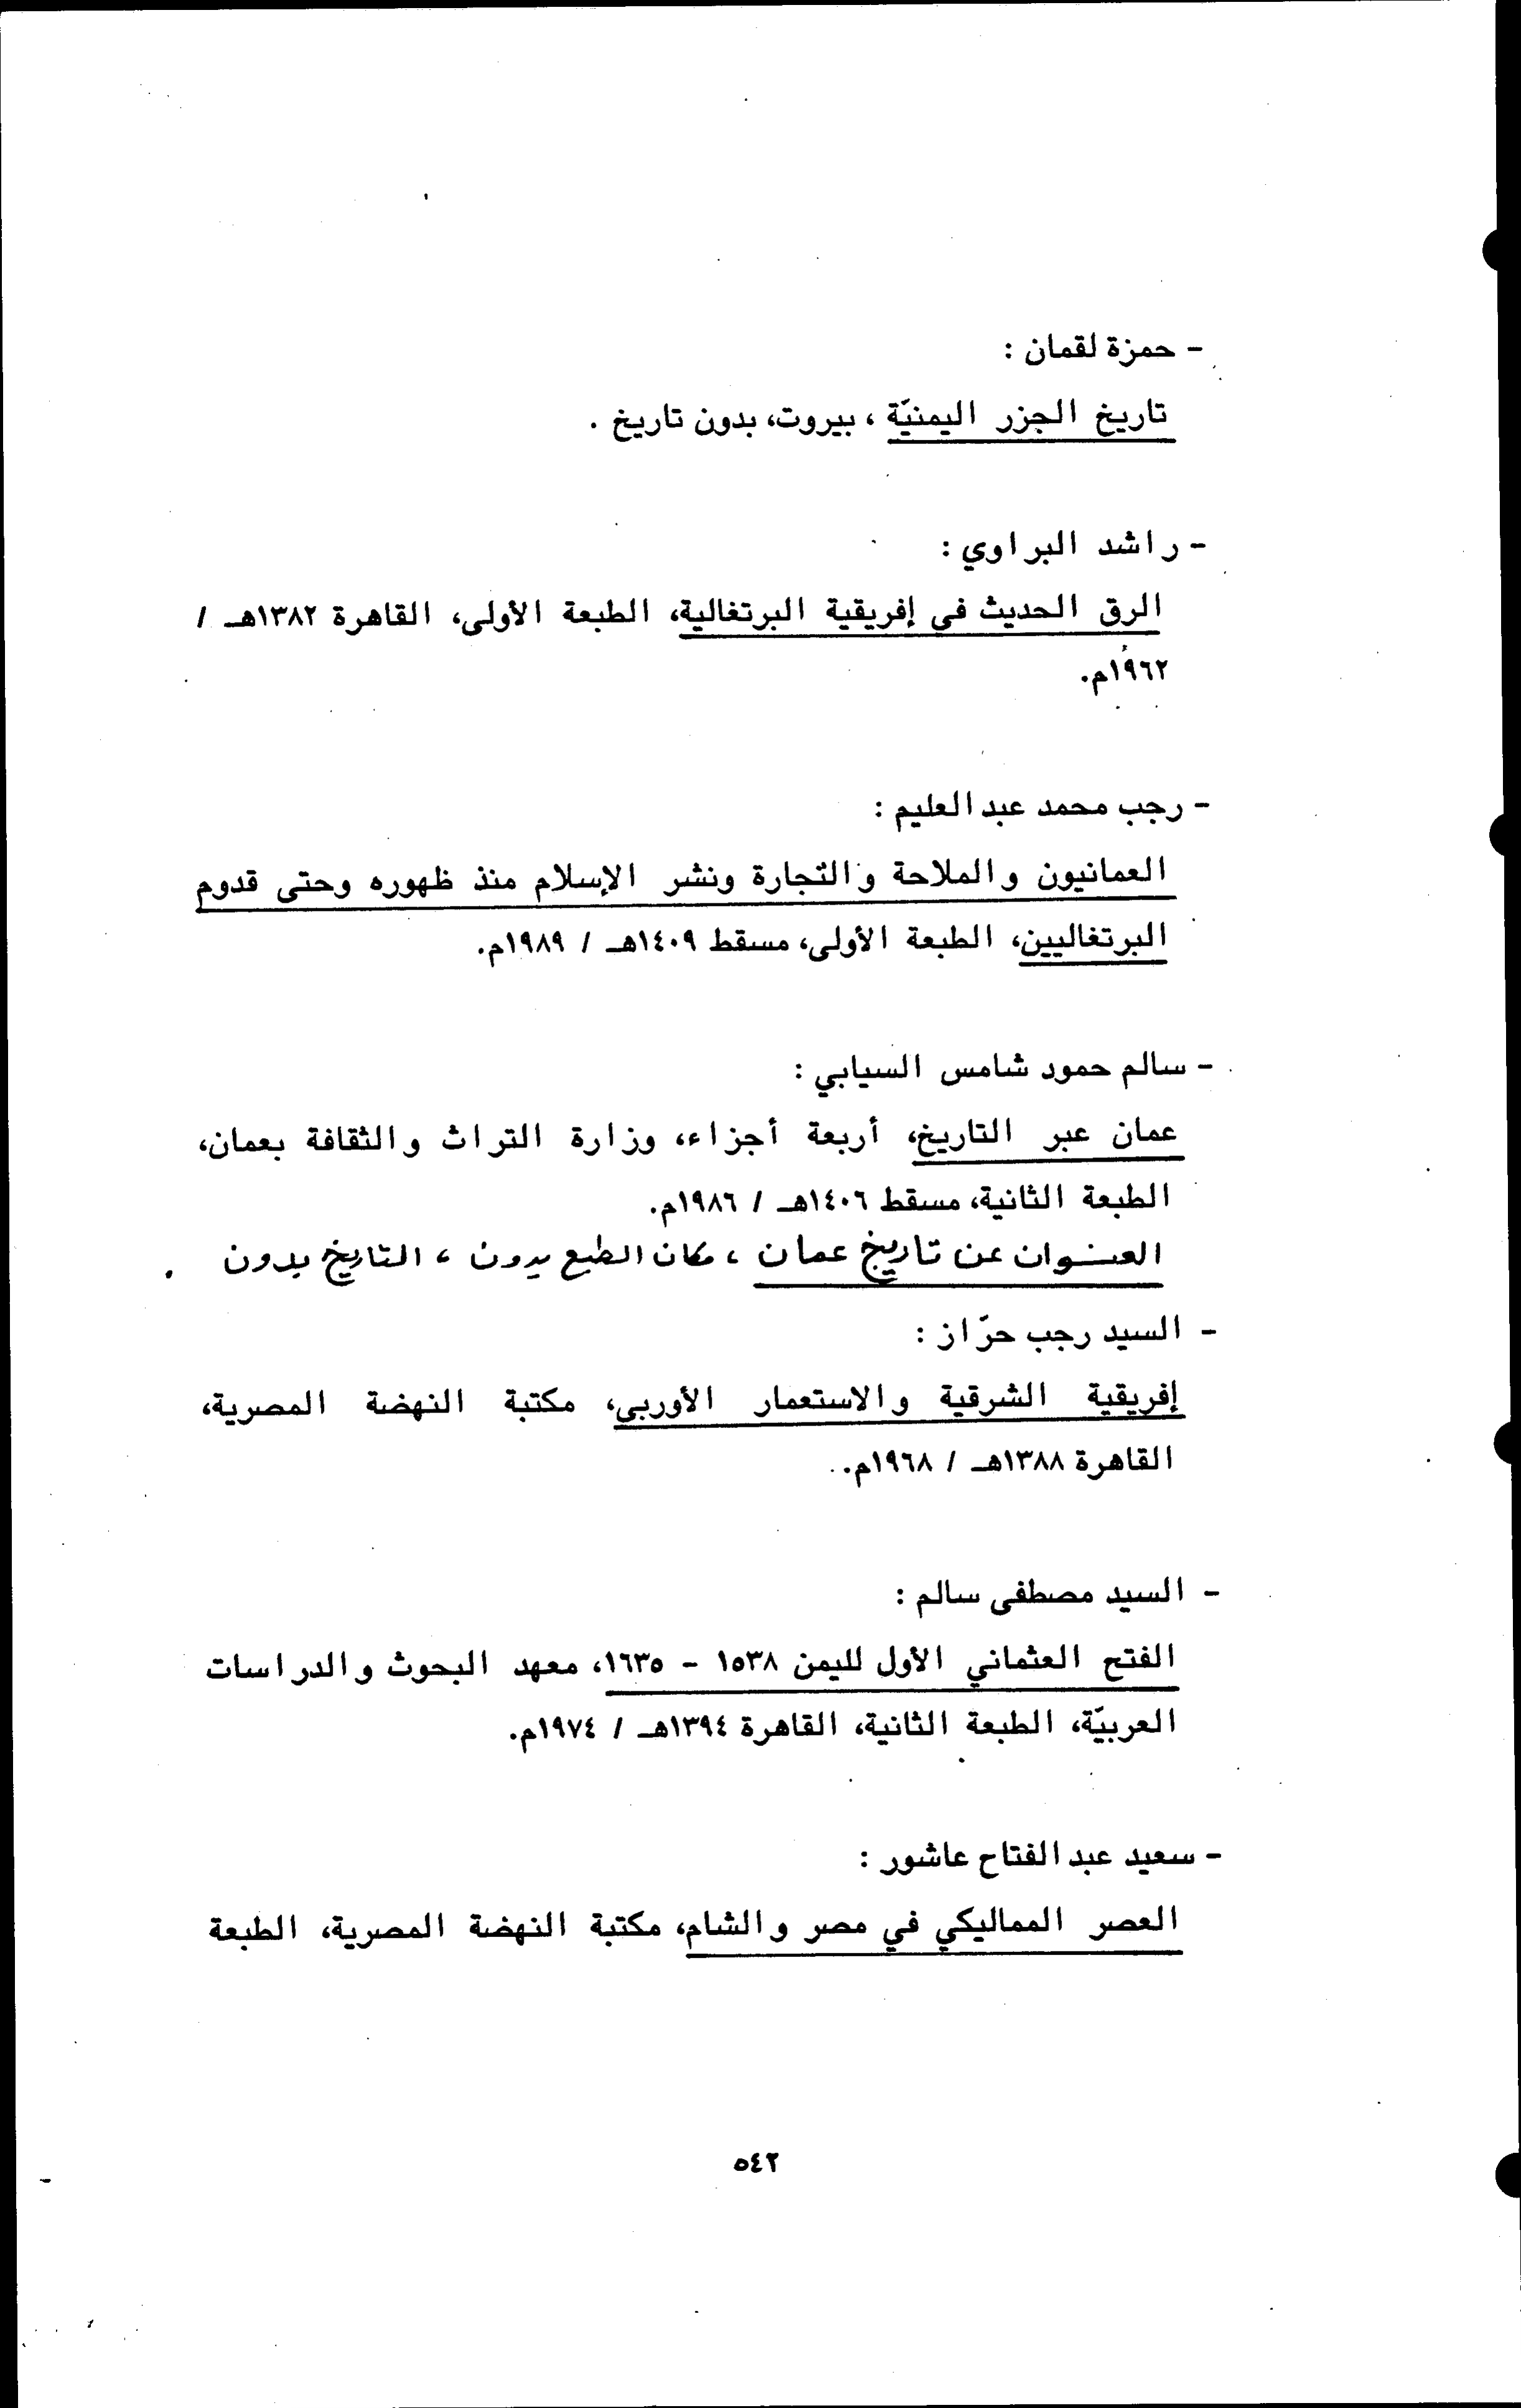 - حمزة لقمان :
تاريخ الجزر اليمنيّة ، بيروت، بدون تاريخ .
- راشد البراوي :
الرق الحديث في إفريقية البرتغالية، الطبعة الأولى، القاهرة ١٣٨٢هـ /
١٩٦٢م.
- رجب محمد عبدالعليم :
العمانيون والملاحة والتجارة ونشر الإسلام منذ ظهوره وحتى قدوم
البرتغاليين، الطبعة الأولى، مسقط ١٤٠٩هـ / ١٩٨٩م.
- سالم حمود شامس السيابي :
عمان عبر التاريخ، أربعة أجزاء، وزارة التراث والثقافة بعمان،
الطبعة الثانية، مسقط ١٤٠٦هـ / ١٩٨٦م.
العنوان عن تاريخ عمان ، مكان الطبع بدون ، التاريخ بدون .
- السيد رجب حرّاز :
إفريقية الشرقية والاستعمار الأوربي، مكتبة النهضة المصرية،
القاهرة ١٣٨٨هـ / ١٩٦٨م.
- السيد مصطفى سالم :
الفتح العثماني الأول لليمن ١٥٣٨ - ١٦٣٥، معهد البحوث والدراسات
العربيّة، الطبعة الثانية، القاهرة ١٣٩٤هـ / ١٩٧٤م.
- سعيد عبدالفتاح عاشور :
العصر المماليكي في مصر والشام، مكتبة النهضة المصرية، الطبعة
٥٤٢